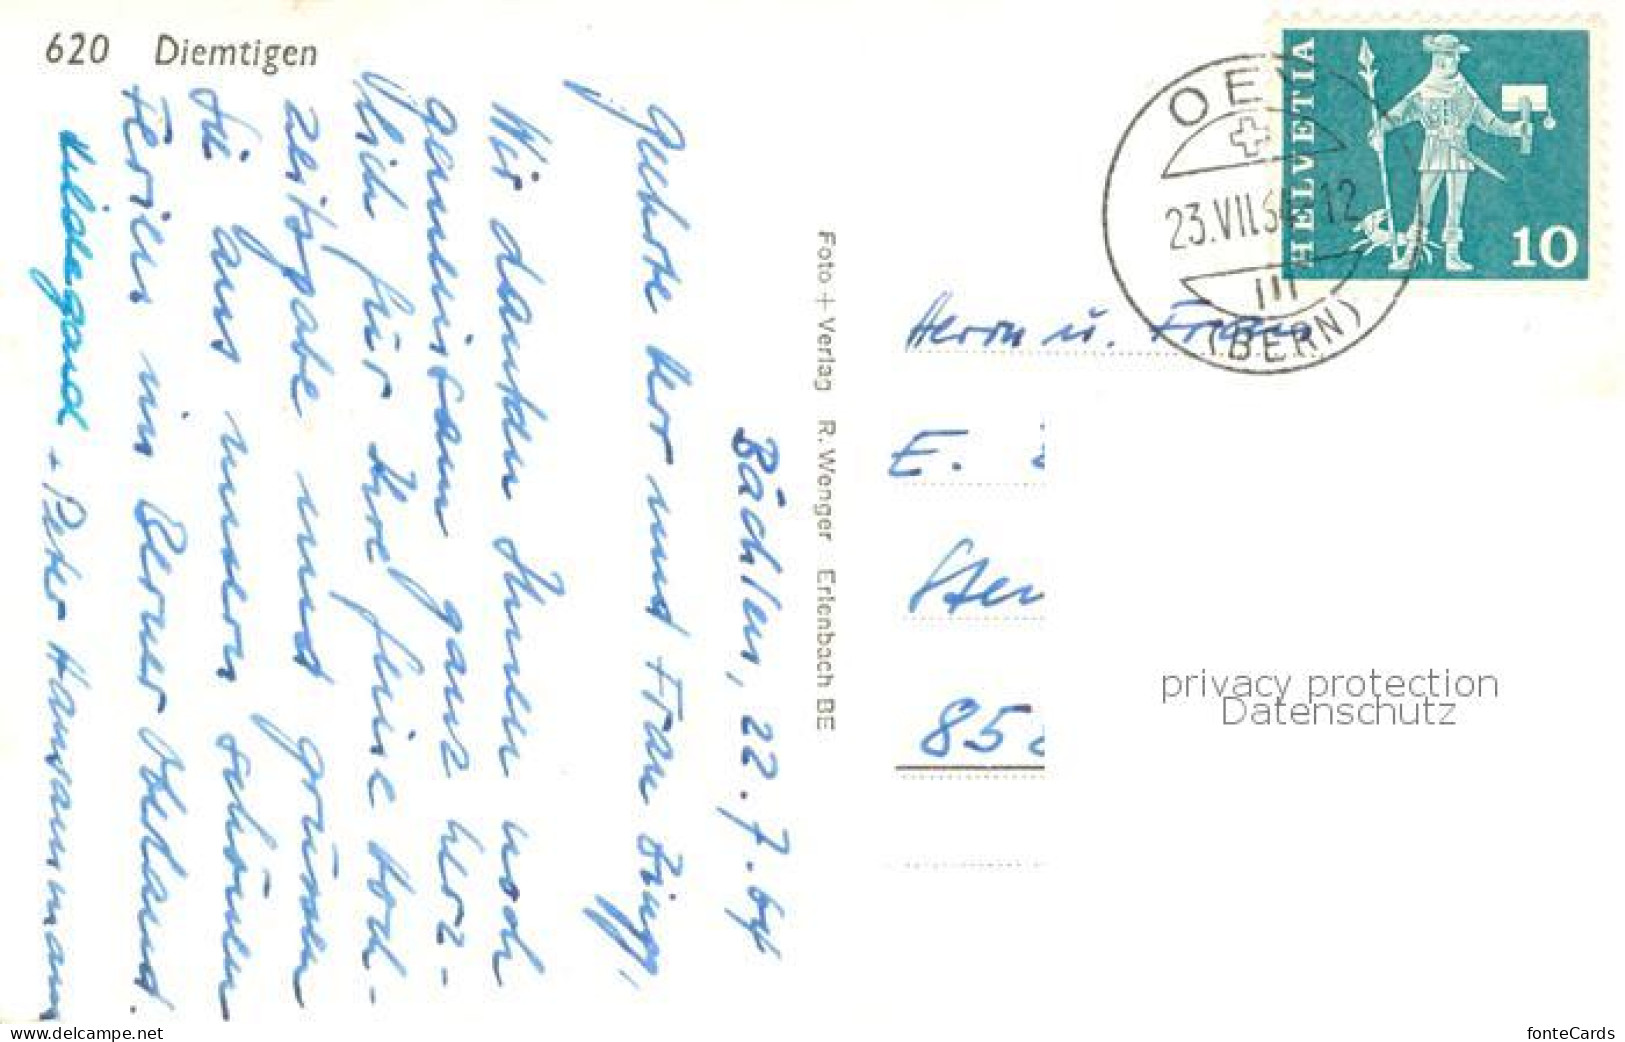 620 Diemtigen
Bächlen, 22.7.64
Geehrte Herr und Frau Bürgi,
Wir danken Ihnen noch
gemeinsam ganz herz-
lich für Ihre feine Hoch-
zeitsgabe und grüssen
Sie aus unsern schönen
Ferien im Berner Oberland.
Hildegard + Peter Hansammann
Foto + Verlag R. Wenger Erlenbach BE
HELVETIA
10
OEY
23.VII.64 12
III
(BERN)
Herrn u. Frau
E.
85
privacy protection
Datenschutz
www.delcampe.net
fonteCards